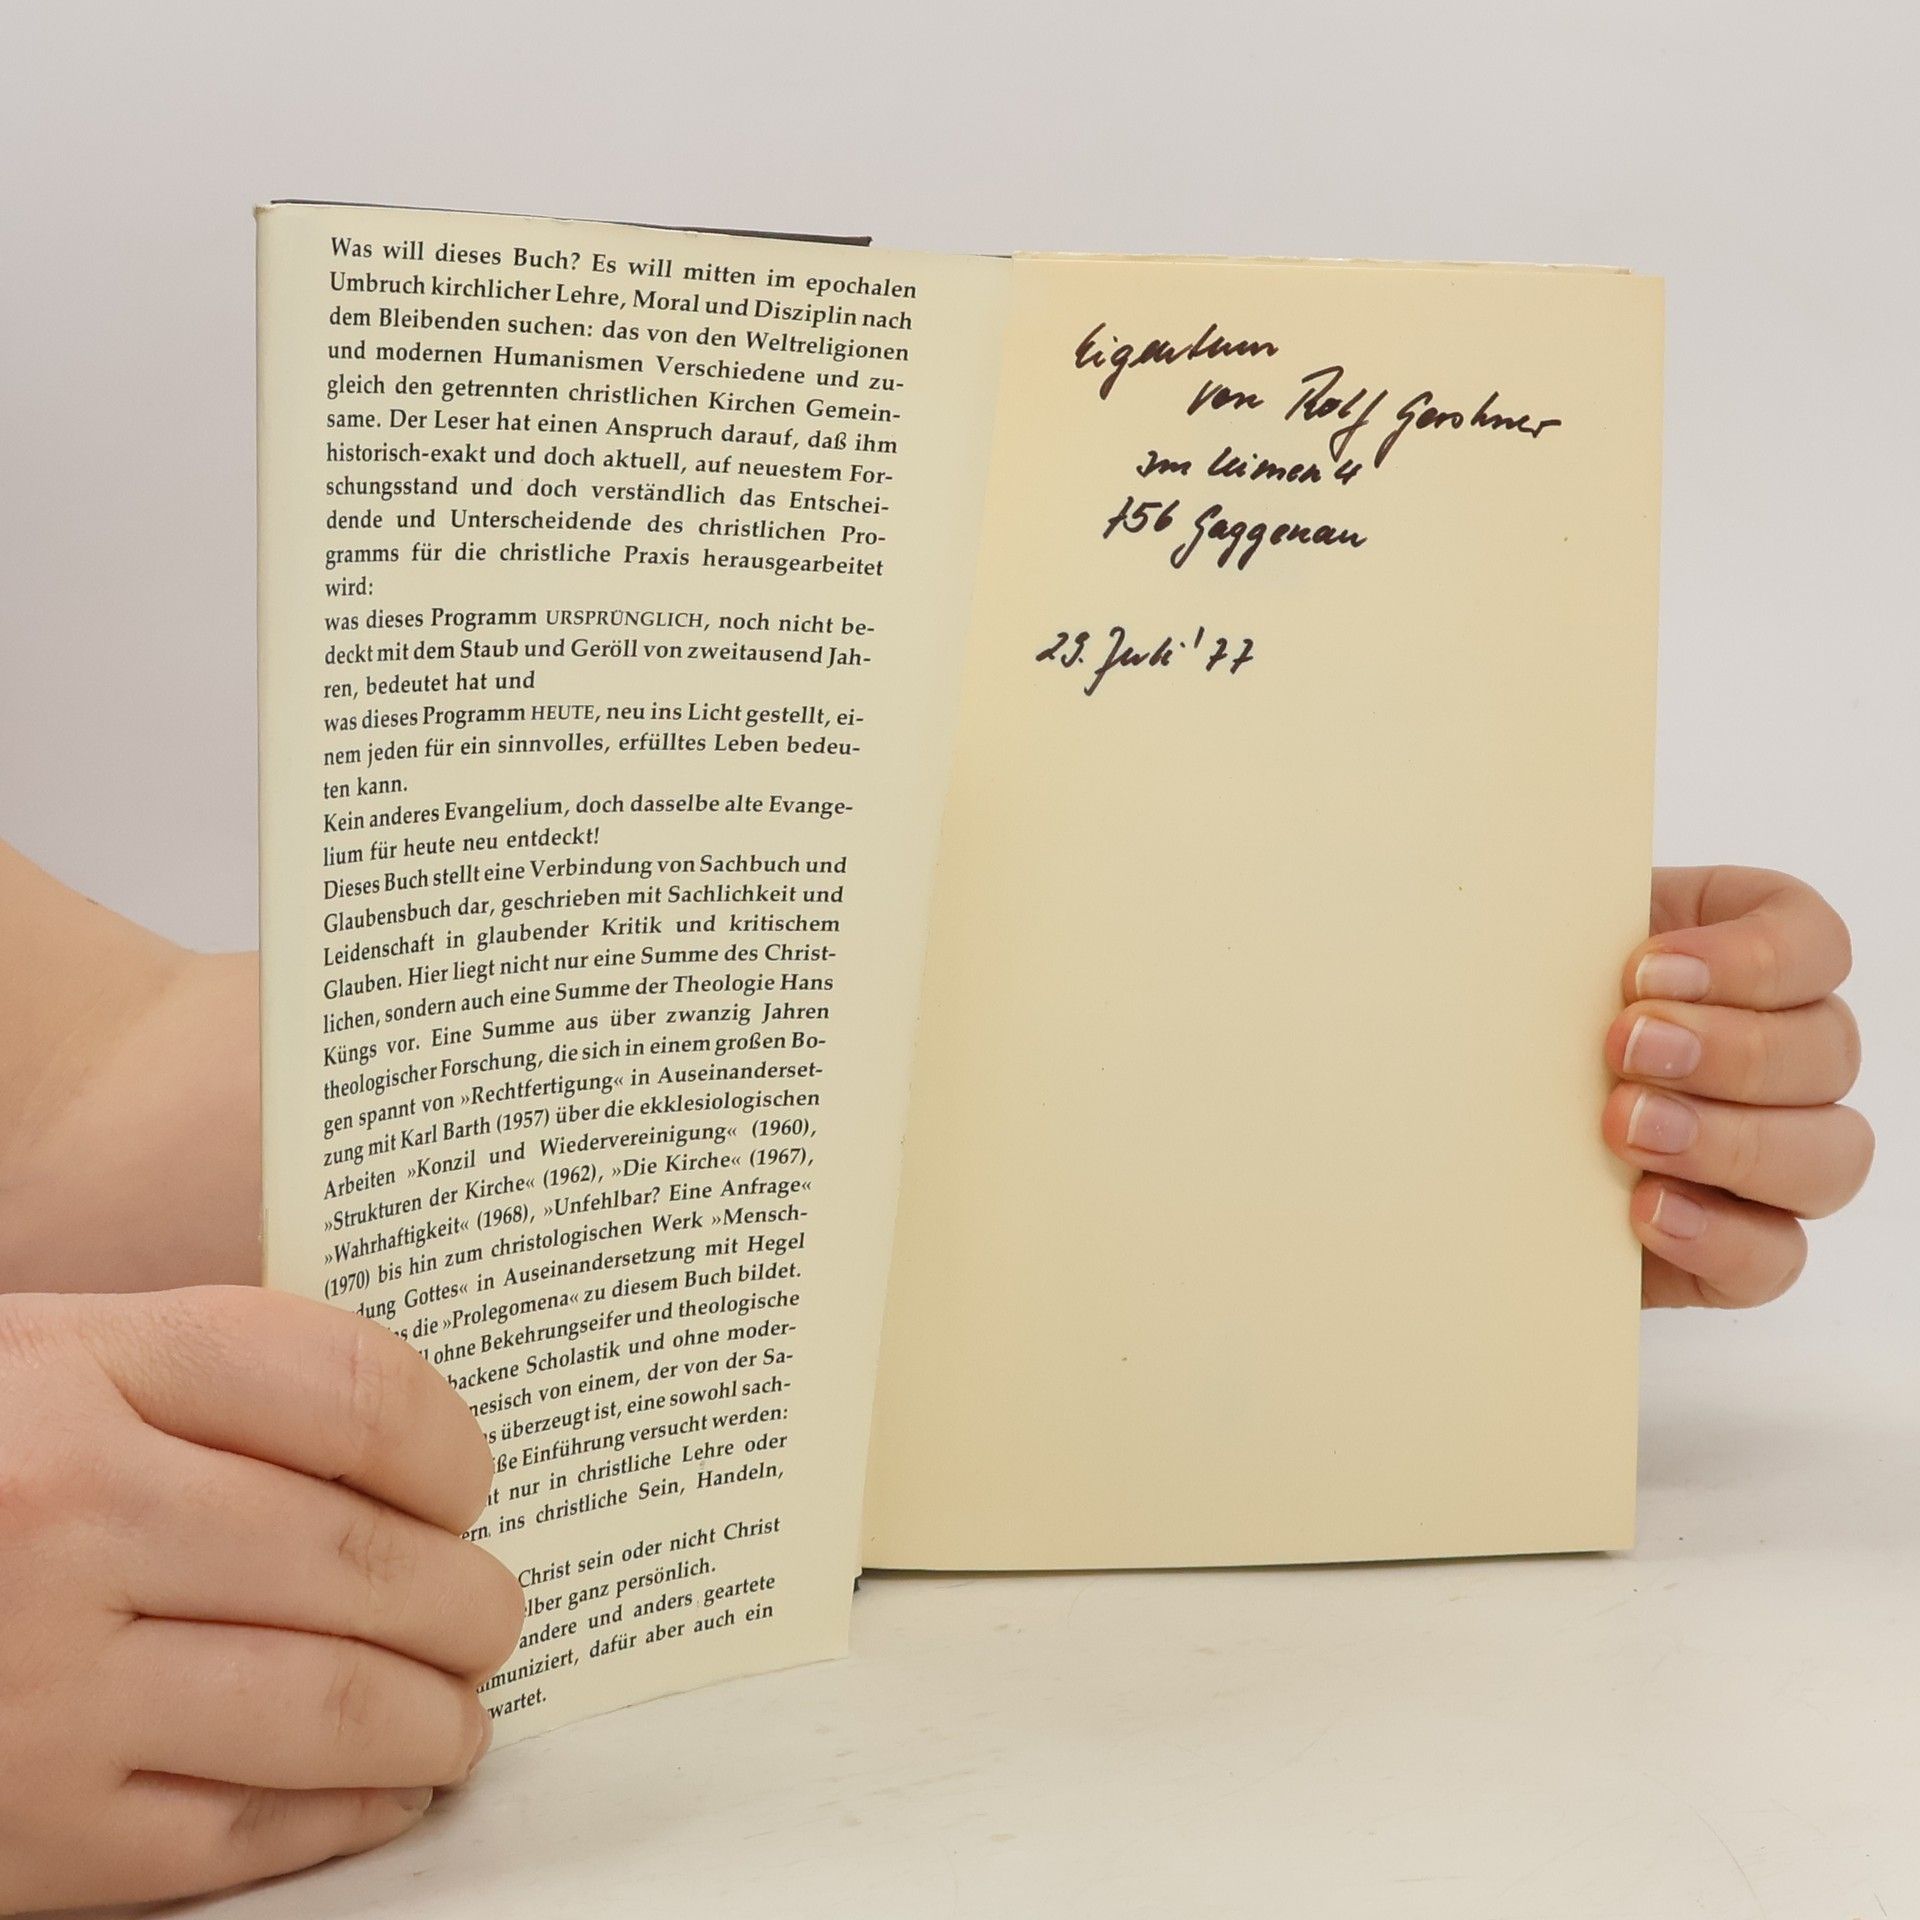 Was will dieses Buch? Es will mitten im epochalen
Umbruch kirchlicher Lehre, Moral und Disziplin nach
dem Bleibenden suchen: das von den Weltreligionen
und modernen Humanismen Verschiedene und zu-
gleich den getrennten christlichen Kirchen Gemein-
same. Der Leser hat einen Anspruch darauf, daß ihm
historisch-exakt und doch aktuell, auf neuestem For-
schungsstand und doch verständlich das Entschei-
dende und Unterscheidende des christlichen Pro-
gramms für die christliche Praxis herausgearbeitet
wird:
was dieses Programm URSPRÜNGLICH, noch nicht be-
deckt mit dem Staub und Geröll von zweitausend Jah-
ren, bedeutet hat und
was dieses Programm HEUTE, neu ins Licht gestellt, ei-
nem jeden für ein sinnvolles, erfülltes Leben bedeu-
ten kann.
Kein anderes Evangelium, doch dasselbe alte Evange-
lium für heute neu entdeckt!
Dieses Buch stellt eine Verbindung von Sachbuch und
Glaubensbuch dar, geschrieben mit Sachlichkeit und
Leidenschaft in glaubender Kritik und kritischem
Glauben. Hier liegt nicht nur eine Summe des Christ-
lichen, sondern auch eine Summe der Theologie Hans
Küngs vor. Eine Summe aus über zwanzig Jahren
theologischer Forschung, die sich in einem großen Bo-
gen spannt von »Rechtfertigung« in Auseinanderset-
zung mit Karl Barth (1957) über die ekklesiologischen
Arbeiten »Konzil und Wiedervereinigung« (1960),
»Strukturen der Kirche« (1962), »Die Kirche« (1967),
»Wahrhaftigkeit« (1968), »Unfehlbar? Eine Anfrage«
(1970) bis hin zum christologischen Werk »Mensch-
dung Gottes« in Auseinandersetzung mit Hegel
die »Prolegomena« zu diesem Buch bildet.
ohne Bekehrungseifer und theologische
backene Scholastik und ohne moder-
nesisch von einem, der von der Sa-
überzeugt ist, eine sowohl sach-
Einführung versucht werden:
nur in christliche Lehre oder
ern, ins christliche Sein, Handeln,
Christ sein oder nicht Christ
lber ganz persönlich.
andere und anders geartete
muniziert, dafür aber auch ein
wartet.
Eigentum
von Rolf
Im 4
756 Gaggenau
29. Juli '77